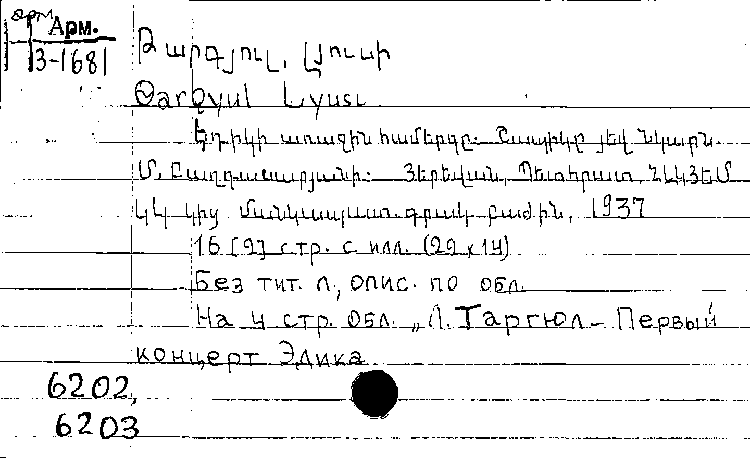 арм
Арм.
3-1681
Թարգյուլ, Լյուսի
Өarգyul Lyusi
Եդիկի առաջին համերգը: Շապիկը յեվ նկարն.
Մ. Բաղդասարյանի: Յերեվան, Պետհրատ, ՀԼԿՅԵՄ
ԿԿ կից մանկապատ.գրակ բաժին, 1937
16 [2] стр. с илл. (22 x 14)
Без тит. л., опис. по обл.
На 4 стр. обл. „Л. Таргюл - Первый
концерт Эдика
6202,
6203